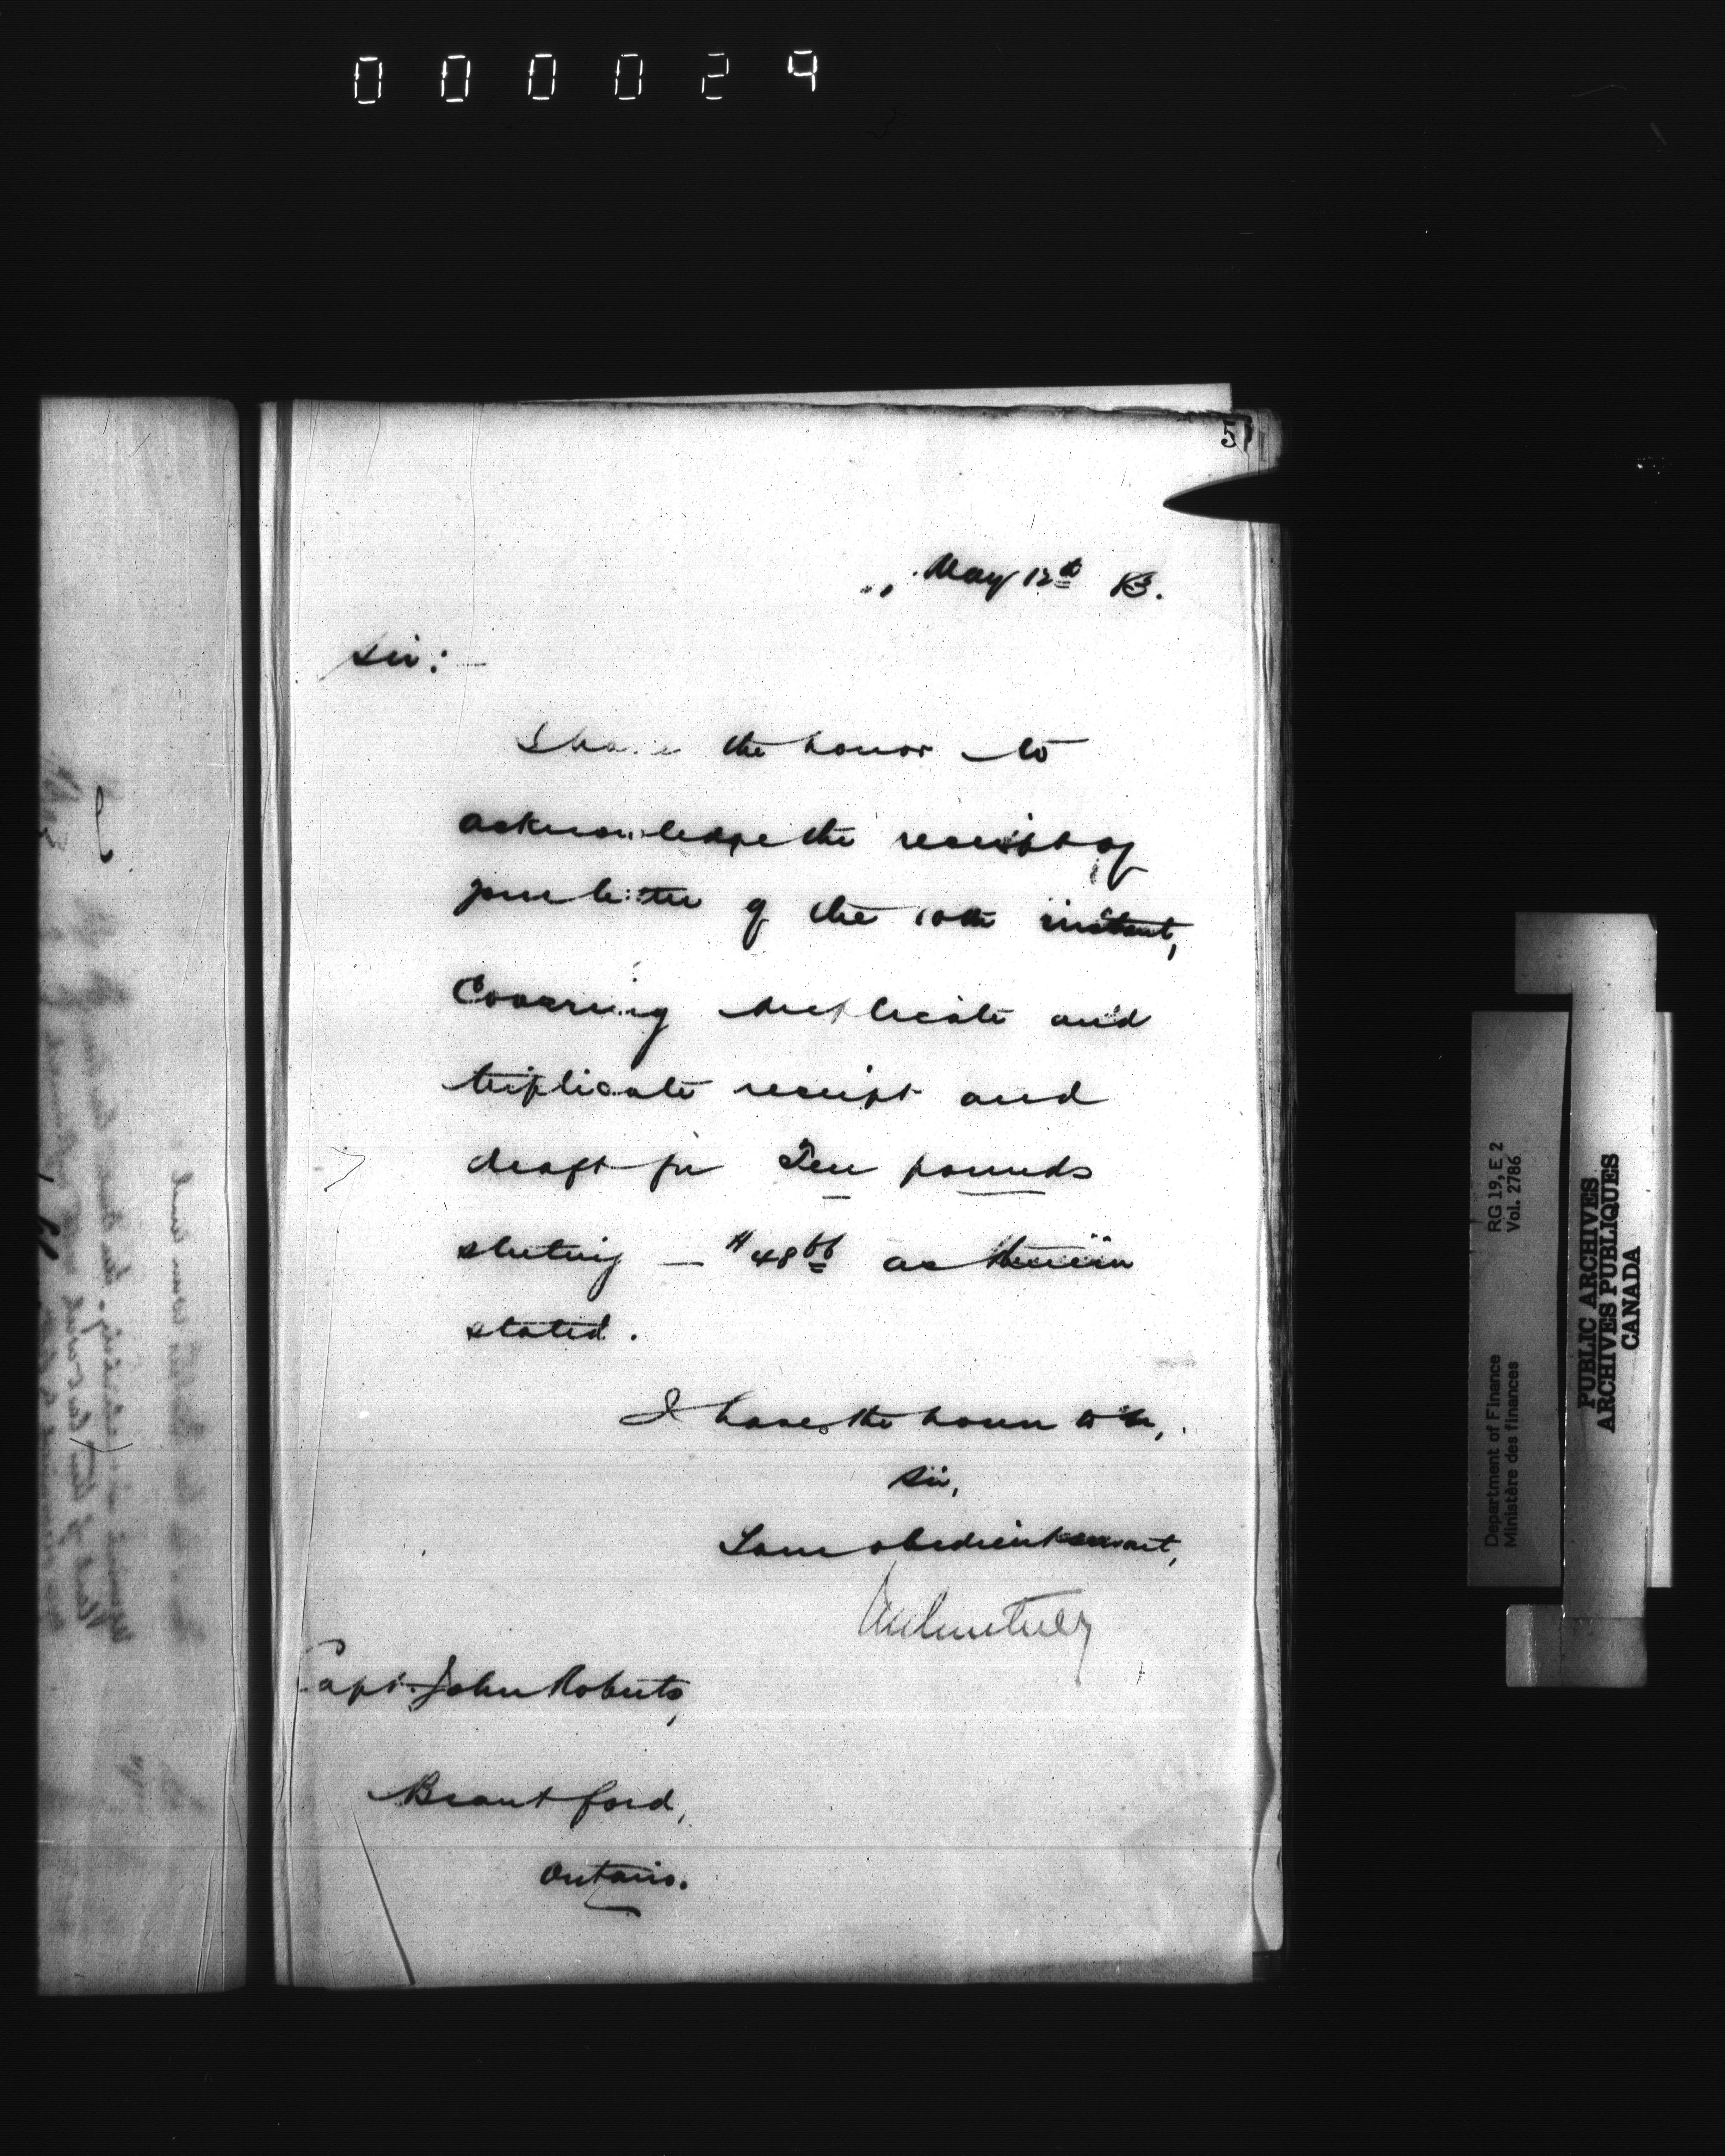 000024
5
May 12th 83.
Sir:—
I have the honor to
acknowledge the receipt of
your letter of the 10th instant,
Covering duplicate and
triplicate receipt and
draft for Ten pounds
sterling — $48 66 as therein
stated.
I have the honor to be,
Sir,
Your obedient servant,
Capt. John Roberts,
Brantford,
Ontario.
Department of Finance RG 19, E 2
Ministère des finances Vol. 2786
PUBLIC ARCHIVES
ARCHIVES PUBLIQUES
CANADA